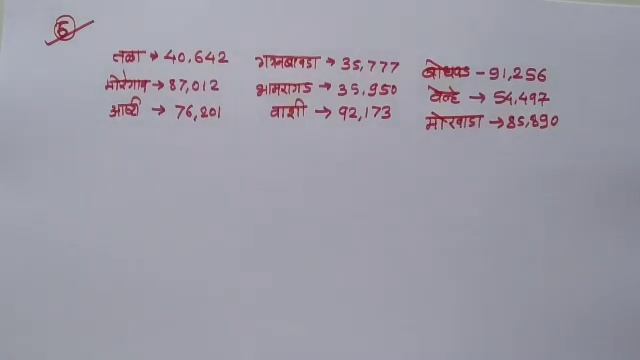 5
तळा → 40,642 गगनबावडा → 35,777 बोधवड - 91,256
मोरगाव → 87,012 भामरागड → 35,950 वेल्हे → 54,497
आष्टी → 76,201 वाशी → 92,173 मोखाडा → 85,890